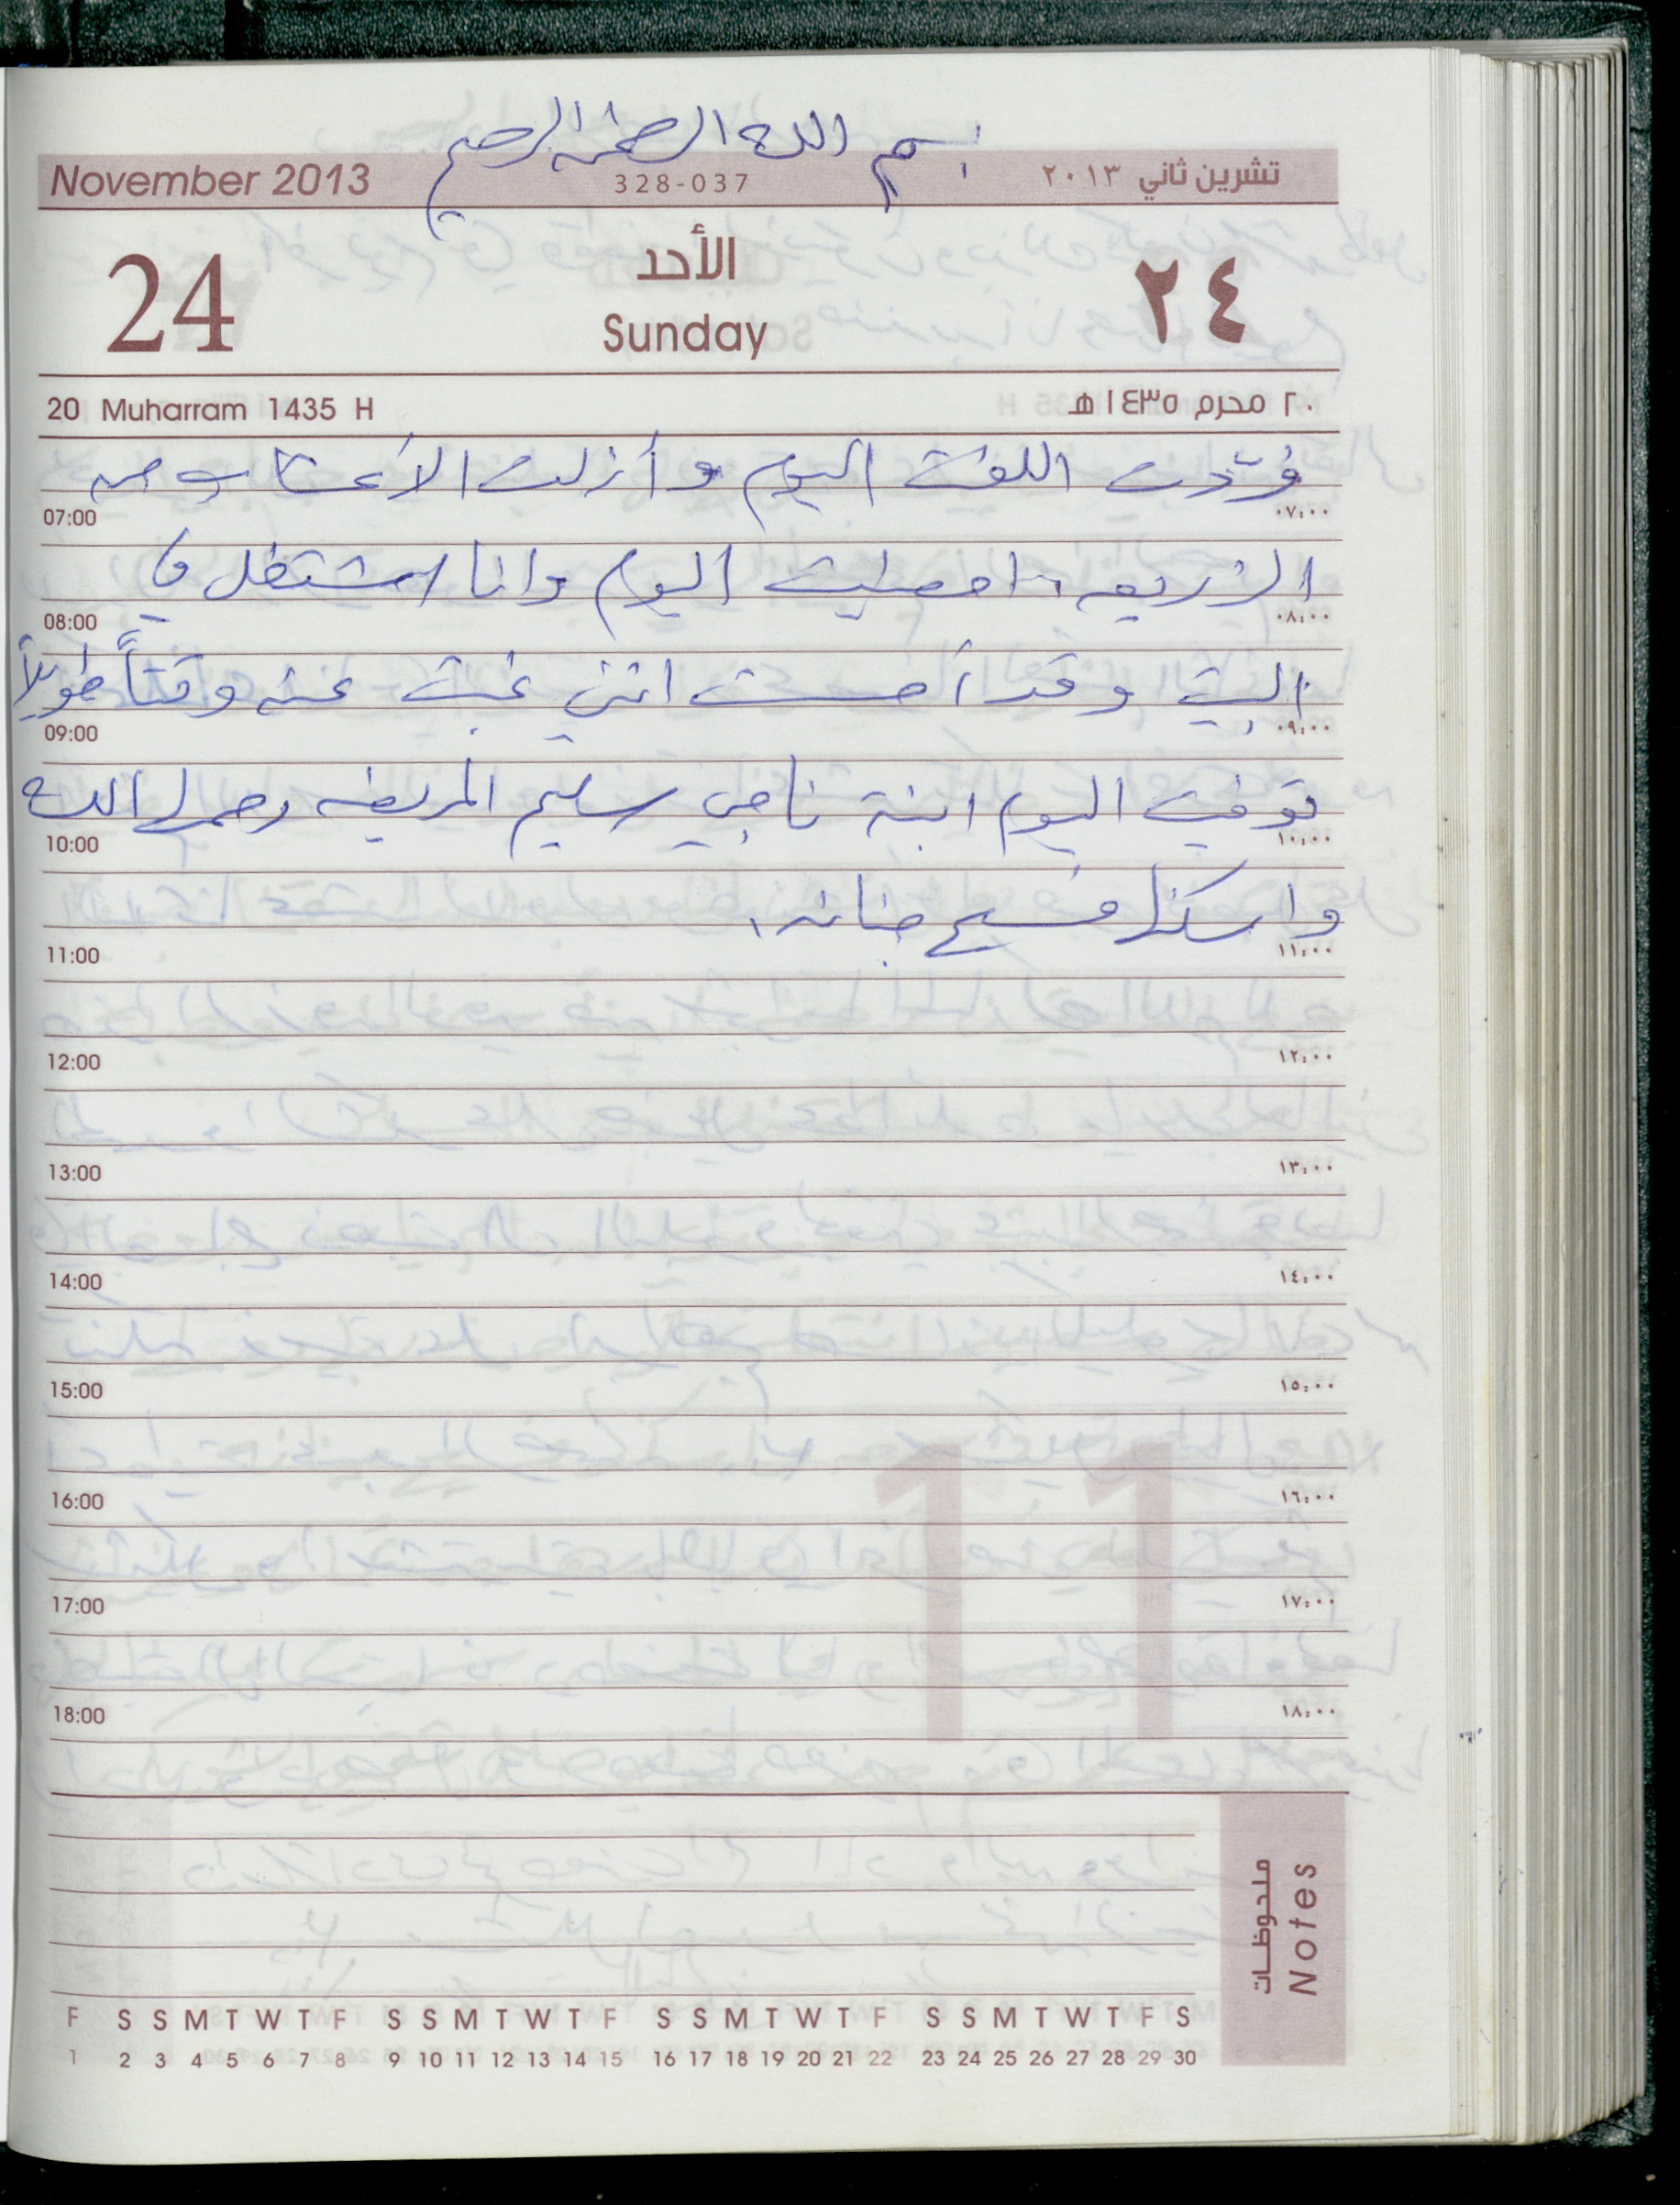 بسم الله الرحمن الرحيم
November 2013 328-037 تشرين ثاني ٢٠١٣
24 الأحد ٢٤
Sunday
20 Muharram 1435 H ٢٠ محرم ١٤٣٥ هـ
فرّدت اللفت اليوم وأزلت الأعشاب من
07:00 ٠٧:٠٠
اليوم وانا اشتغل في
08:00 ٠٨:٠٠
البيت وقد أحسست انني غبت عنه وقتاً طويلاً
09:00 ٠٩:٠٠
توفيت اليوم ابنة ناجي سليم المريضه رحمها الله
10:00 ١٠:٠٠
واسكنها فسيح جنانه.
11:00 ١١:٠٠
12:00 ١٢:٠٠
13:00 ١٣:٠٠
14:00 ١٤:٠٠
15:00 ١٥:٠٠
16:00 ١٦:٠٠
17:00 ١٧:٠٠
18:00 ١٨:٠٠
11
ملحوظات
Notes
F S S M T W T F S S M T W T F S S M T W T F S S M T W T F S
1 2 3 4 5 6 7 8 9 10 11 12 13 14 15 16 17 18 19 20 21 22 23 24 25 26 27 28 29 30